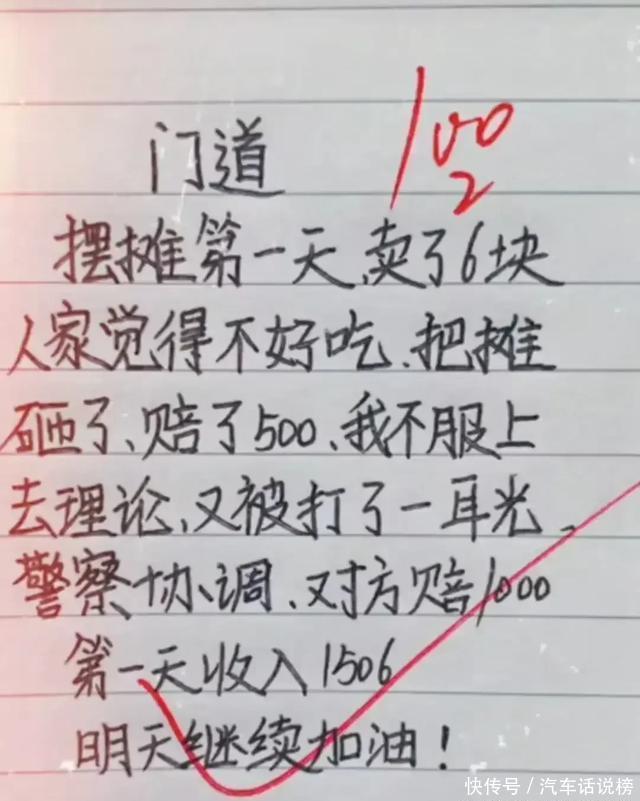 门道
100
2
摆摊第一天,卖了6块
人家觉得不好吃、把摊
砸了、赔了500、我不服上
去理论、又被打了一耳光、
警察协调、对方赔1000
第一天收入1506
明天继续加油!
快传号/汽车话说榜